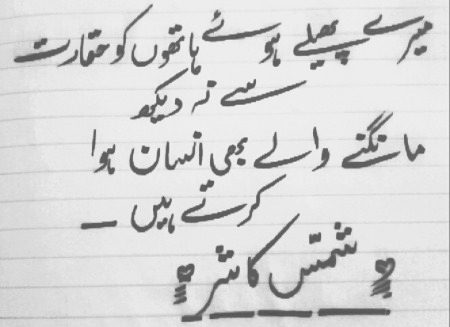 میرے پھیلے ہوئے ہاتھوں کو حقارت
سے نہ دیکھ
مانگنے والے بھی انسان ہوا
کرتے ہیں ۔
شمسؔ کاشر